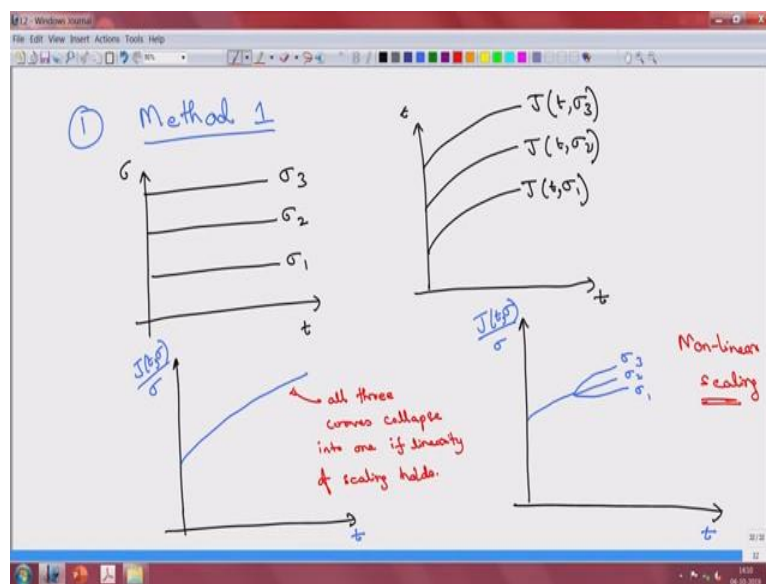 12 - Windows Journal
File Edit View Insert Actions Tools Help
① Method 1
σ
σ3
σ2
σ1
t
ε
J(t,σ3)
J(t,σ2)
J(t,σ1)
t
J(t,σ)/σ
all three
curves collapse
into one if linearity
of scaling holds.
t
J(t,σ)/σ
σ3
σ2
σ1
Non-linear
scaling
t
32